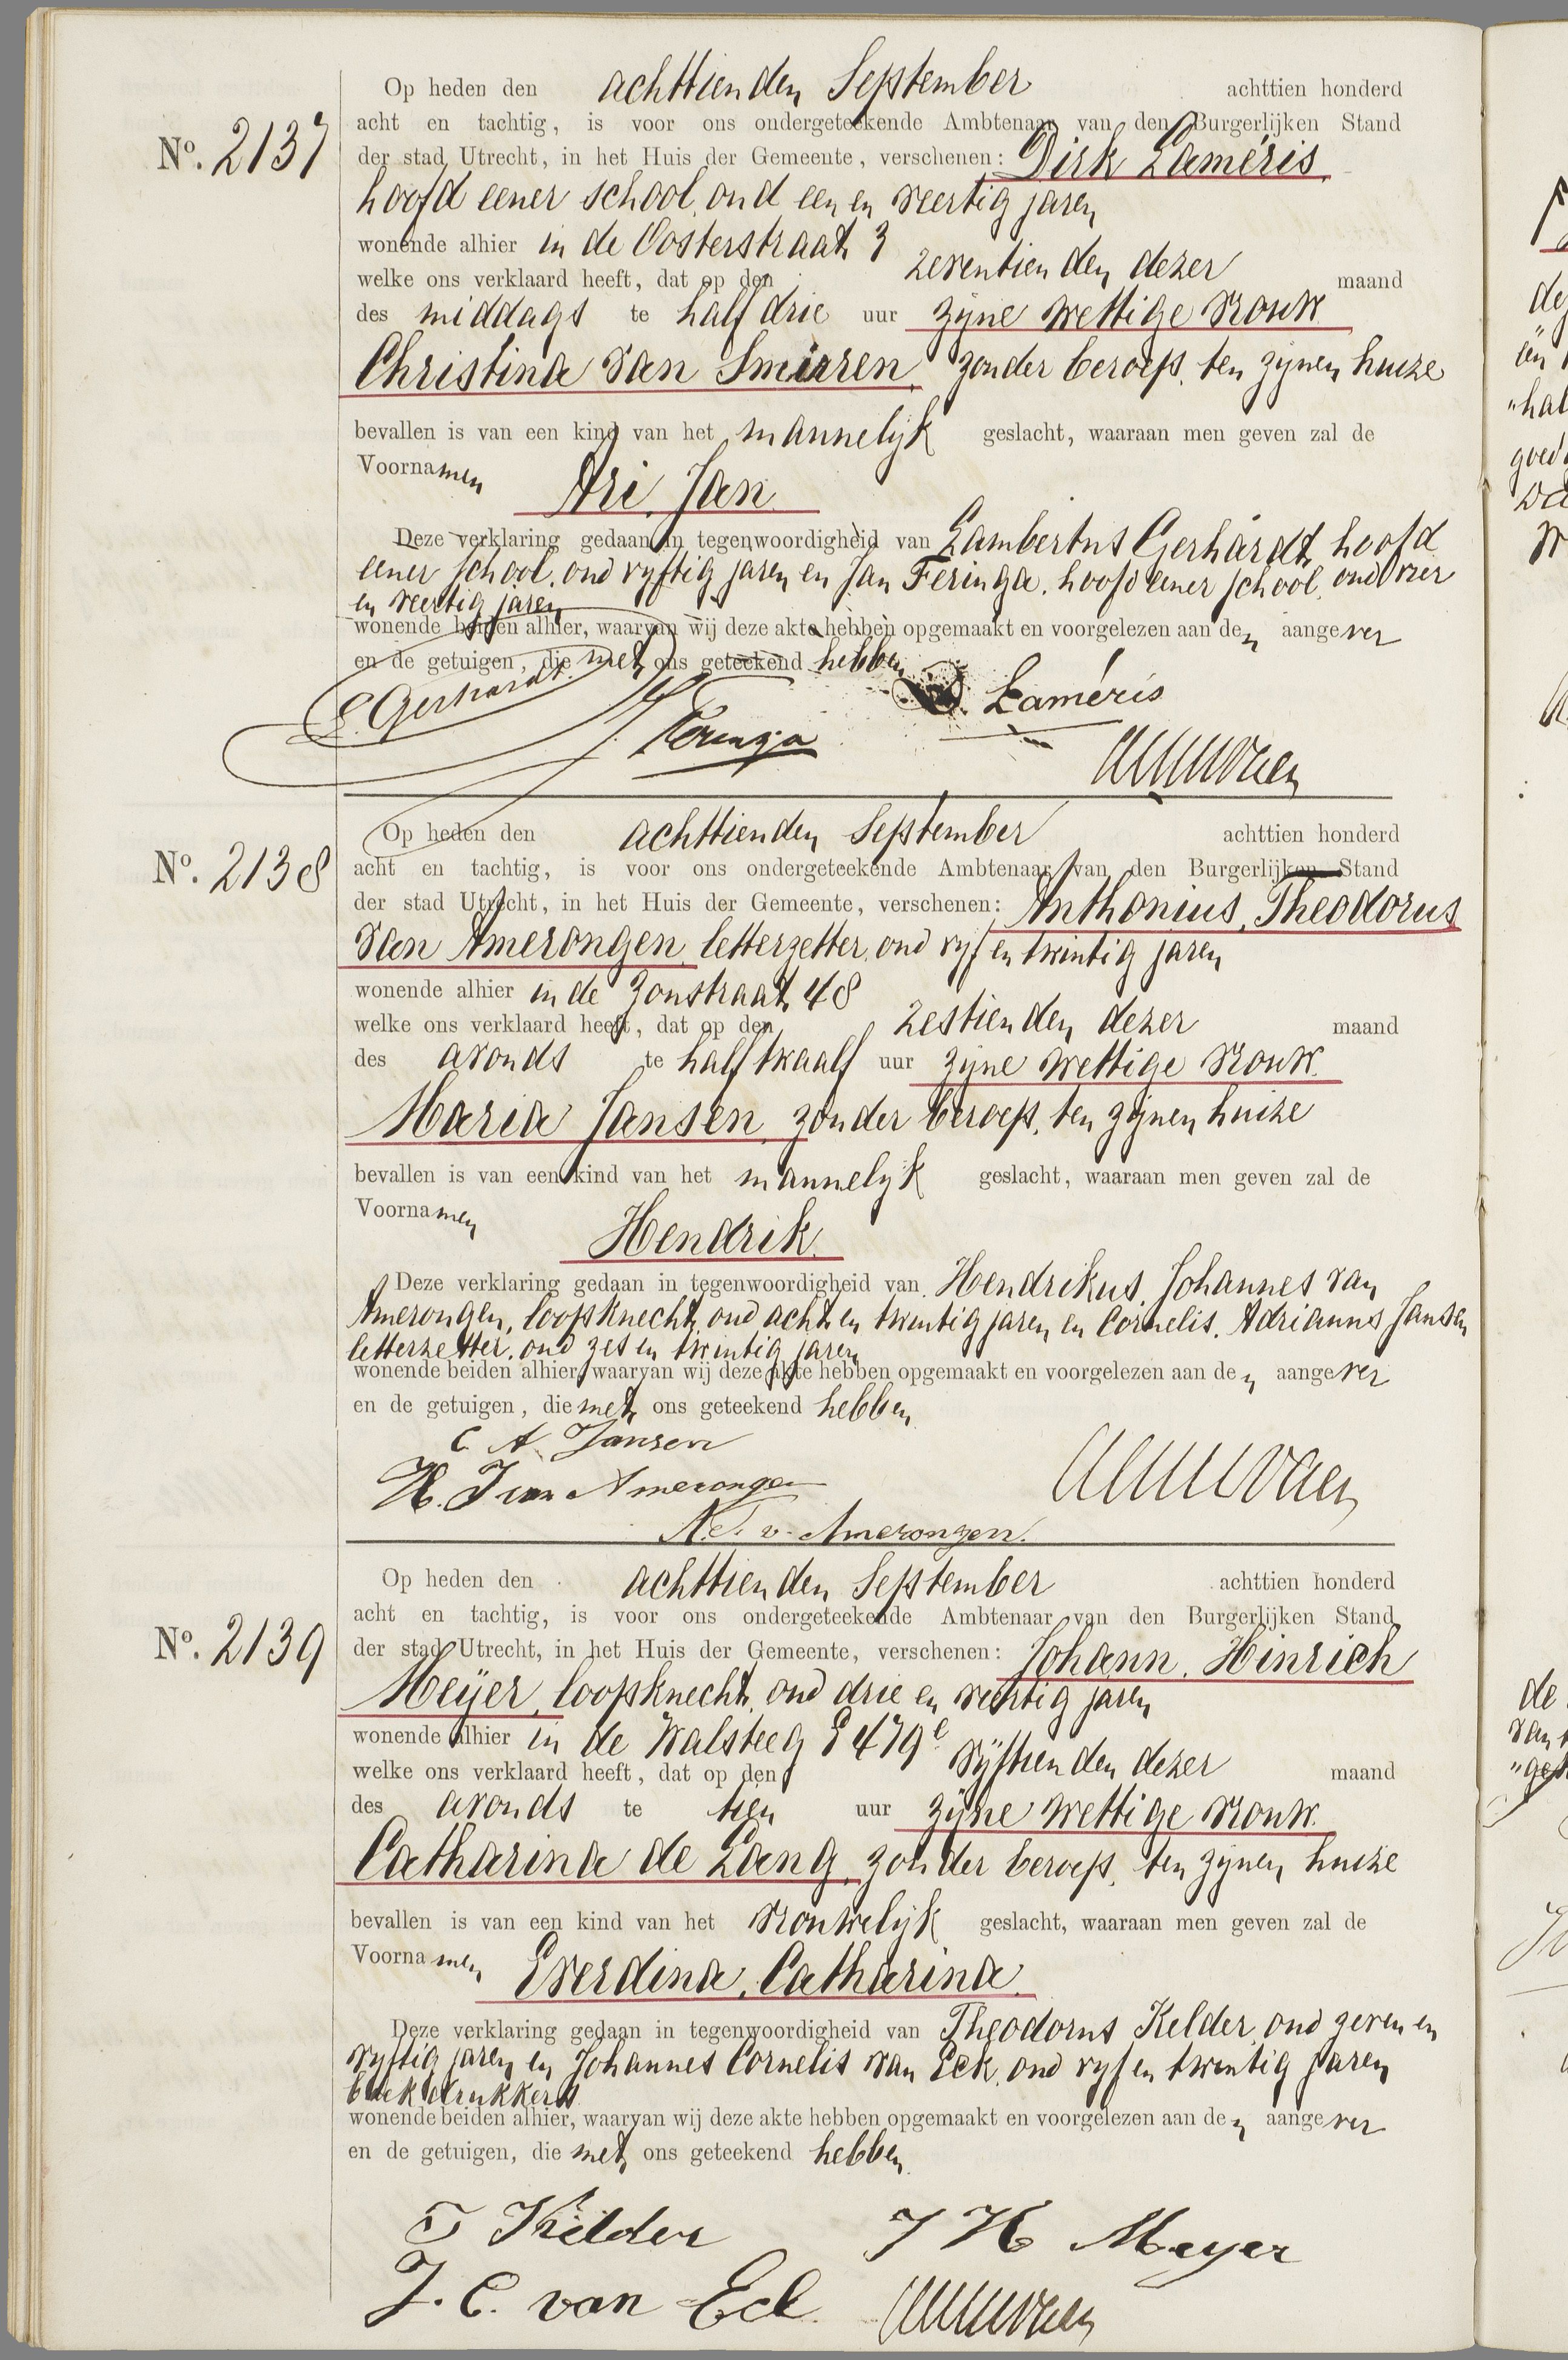 Op heden den achttienden September achttien honderd
No. 2137
acht en tachtig, is voor ons ondergeteekende Ambtenaar van den Burgerlijken Stand
der stad Utrecht, in het Huis der Gemeente, verschenen: Dirk Laméris,
hoofd eener school, oud een en veertig jaren
wonende alhier in de Oosterstraat 3
welke ons verklaard heeft, dat op den zeventienden dezer maand
des middags te half drie uur zijne wettige vrouw
Christina van Smirren, zonder beroep, ten zijnen huize
bevallen is van een kind van het mannelijk geslacht, waaraan men geven zal de
Voornamen Ari, Jan
Deze verklaring gedaan in tegenwoordigheid van Lambertus Gerhardt, hoofd
eener school, oud vyftig jaren en Jan Feringa, hoofd eener school, oud vier
en veertig jaren
wonende beiden alhier, waarvan wij deze akte hebben opgemaakt en voorgelezen aan den aangever
en de getuigen, die met ons geteekend hebben
L. Gerhardt. D. Laméris
J. Feringa
Op heden den achttienden September achttien honderd
No. 2138
acht en tachtig, is voor ons ondergeteekende Ambtenaar van den Burgerlijken Stand
der stad Utrecht, in het Huis der Gemeente, verschenen: Anthonius, Theodorus
van Amerongen, letterzetter, oud vyf en twintig jaren
wonende alhier in de Zonstraat 48
welke ons verklaard heeft, dat op den zestienden dezer maand
des avonds te half twaalf uur zijne wettige vrouw
Maria Jansen, zonder beroep, ten zijnen huize
bevallen is van een kind van het mannelyk geslacht, waaraan men geven zal de
Voornamen Hendrik.
Deze verklaring gedaan in tegenwoordigheid van Hendrikus, Johannes van
Amerongen, loopknecht, oud acht en twintig jaren en Cornelis, Adrianus Jansen
letterzetter, oud zes en twintig jaren
wonende beiden alhier, waarvan wij deze akte hebben opgemaakt en voorgelezen aan den aangever
en de getuigen, die met ons geteekend hebben
C A Jansen
H. J van Amerongen
A. T. v. Amerongen.
Op heden den achttienden September achttien honderd
acht en tachtig, is voor ons ondergeteekende Ambtenaar van den Burgerlijken Stand
No. 2139
der stad Utrecht, in het Huis der Gemeente, verschenen: Johann, Hinrich
Meijer, loopknecht, oud drie en veertig jaren
wonende alhier in de Walsteeg E 479e
welke ons verklaard heeft, dat op den vijftienden dezer maand
des avonds te tien uur zijne wettige vrouw
Catharina de Lang, zonder beroep, ten zijnen huize
bevallen is van een kind van het vrouwelijk geslacht, waaraan men geven zal de
Voornamen Everdina, Catharina.
Deze verklaring gedaan in tegenwoordigheid van Theodorus Kelder, oud zeven en
vyftig jaren en Johannes Cornelis van Eck, oud vyf en twintig jaren
boekdrukkers
wonende beiden alhier, waarvan wij deze akte hebben opgemaakt en voorgelezen aan den aangever
en de getuigen, die met ons geteekend hebben
T Kelder J H Meyer
J. C. van Eck